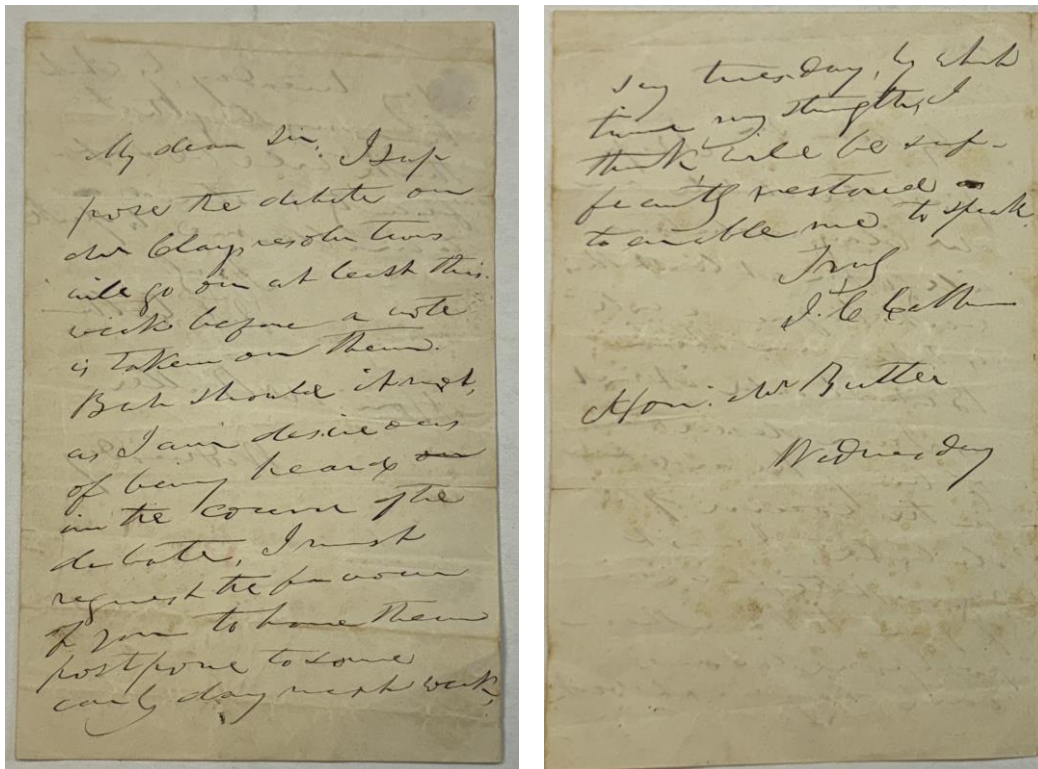 My dear Sir, I sup
pose the debate on
Mr Clays resolutions
will go on at least this
week before a vote
is taken on them.
But should it not,
as I am desireous
of being heard on
in the course of the
debate, I must
request the favour
of you to have them
postpone to some
early day next week,
say tuesday, by which
time my strength, I
think, will be suf-
ficiently restored
to enable me to speak.
Truly
J. C. Calhoun
Hon: Mr Butler
Wednesday